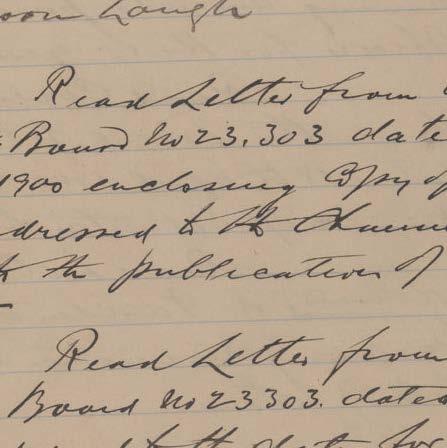 Lough
Read Letter from
Board No 23,303 date
1900 enclosing Copy of
dressed to the
to the publication of
Read Letter from
Board No 23303. dated
to the date for